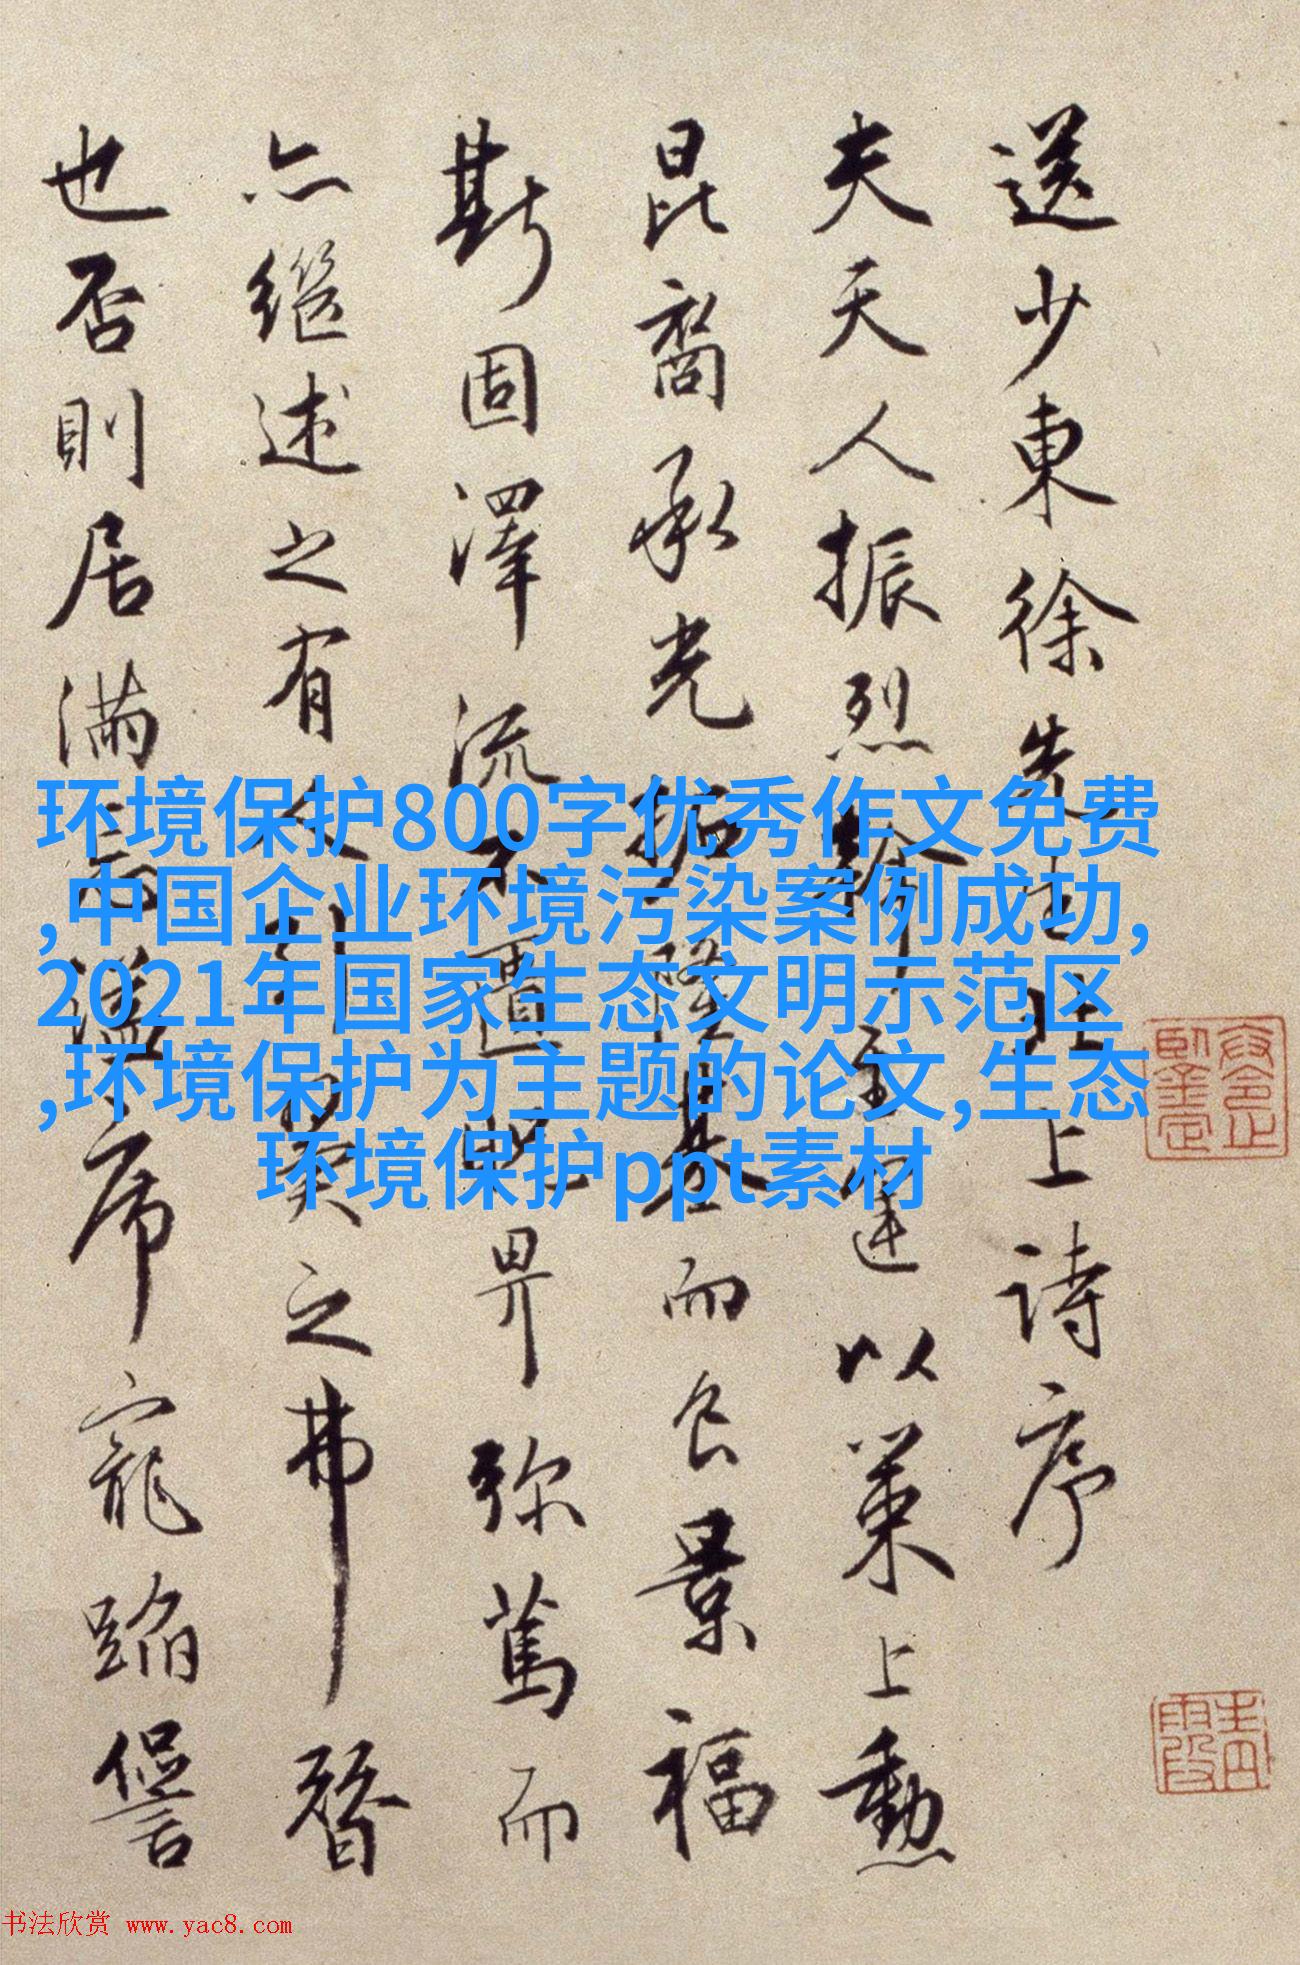 送少東徐先生北上詩序
夫天人振烈以策上勳
昆裔承光拓隆基而景福
斯固澤流不匱畀弥篤而
亦繼述之有引翼之弗替
也否則居滿溢席寵
环境保护800字优秀作文免费
,中国企业环境污染案例成功,
2021年国家生态文明示范区
,环境保护为主题的论文,生态
环境保护ppt素材
书法欣赏 www.yac8.com